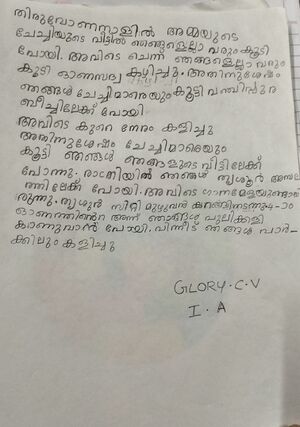 തിരുവോണനാളിൽ അമ്മയുടെ
ചേച്ചിയുടെ വീട്ടിൽ ഞങ്ങളെല്ലാ വരും കൂടി
പോയി. അവിടെ ചെന്ന് ഞങ്ങളെല്ലാ വരും
കൂടി ഓണസദ്യ കഴിച്ചു. അതിനുശേഷം
ഞങ്ങൾ ചേച്ചിമാരെയും കൂട്ടി
ബീച്ചിലേക്ക് പോയി
അവിടെ കുറെ നേരം കളിച്ചു
അതിനുശേഷം ചേച്ചിമാരെയും
കൂട്ടി ഞങ്ങൾ ഞങ്ങളുടെ വീട്ടിലേക്ക്
പോന്നു. രാത്രിയിൽ ഞങ്ങൾ തൃശൂർ അമ്പല
ത്തിലേക്ക് പോയി. അവിടെ ഗാനമേളയുണ്ടായി
രുന്നു. തൃശൂർ സിറ്റി മുഴുവൻ കറങ്ങിനടന്നു. 4-ാം
ഓണത്തിൻെറ അന്ന് ഞങ്ങൾ പുലിക്കളി
കാണുവാൻ പോയി. പിന്നീട് ഞങ്ങൾ പാർ-
ക്കിലും കളിച്ചു
GLORY.C.V
I.A